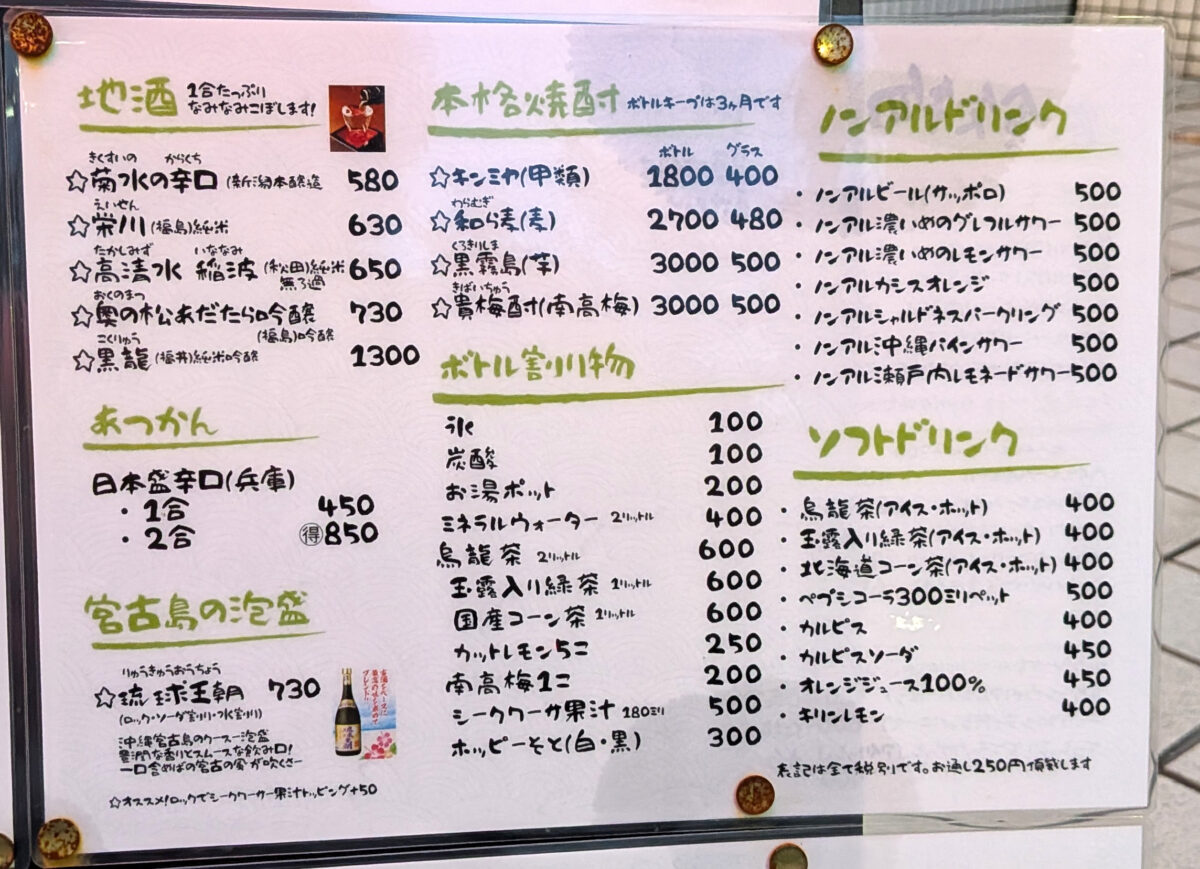 地酒 1合たっぷり
なみなみこぼします!
きくすいの からくち
☆菊水の辛口 (新潟)本醸造 580
えいせん
☆栄川 (福島)純米 630
たかしみず いななみ
☆高清水 稲波 (秋田)純米 650
無ろ過
おくのまつ
☆奥の松あだたら吟醸 730
(福島)吟醸
こくりゅう
☆黒龍 (福井)純米吟醸 1300
あつかん
日本盛辛口(兵庫)
・1合 450
・2合 得850
宮古島の泡盛
りゅうきゅうおうちょう
☆琉球王朝 730
(ロック・ソーダ割り・水割り)
沖縄宮古島のクースー泡盛
豊潤な香りとスムースな飲み口!
一口含めば宮古の風が吹くさー
☆オススメ!ロックでシークワーサー果汁トッピング+50
本格焼酎 ボトルキープは3ヶ月です
ボトル グラス
☆キンミヤ(甲類) 1800 400
わらむぎ
☆和ら麦(麦) 2700 480
くろきりしま
☆黒霧島(芋) 3000 500
きばいちゅう
☆貴梅酎(南高梅) 3000 500
ボトル割り物
氷 100
炭酸 100
お湯ポット 200
ミネラルウォーター 2リットル 400
烏龍茶 2リットル 600
玉露入り緑茶 2リットル 600
国産コーン茶 2リットル 600
カットレモン5コ 250
南高梅1コ 200
シークワーサ果汁 180ミリ 500
ホッピーそと(白・黒) 300
ノンアルドリンク
・ノンアルビール(サッポロ) 500
・ノンアル濃いめのグレフルサワー 500
・ノンアル濃いめのレモンサワー 500
・ノンアルカシスオレンジ 500
・ノンアルシャルドネスパークリング 500
・ノンアル沖縄パインサワー 500
・ノンアル瀬戸内レモネードサワー 500
ソフトドリンク
・烏龍茶(アイス・ホット) 400
・玉露入り緑茶(アイス・ホット) 400
・北海道コーン茶(アイス・ホット) 400
・ペプシコーラ300ミリペット 500
・カルピス 400
・カルピスソーダ 450
・オレンジジュース100% 450
・キリンレモン 400
表記は全て税別です。お通し250円頂戴します